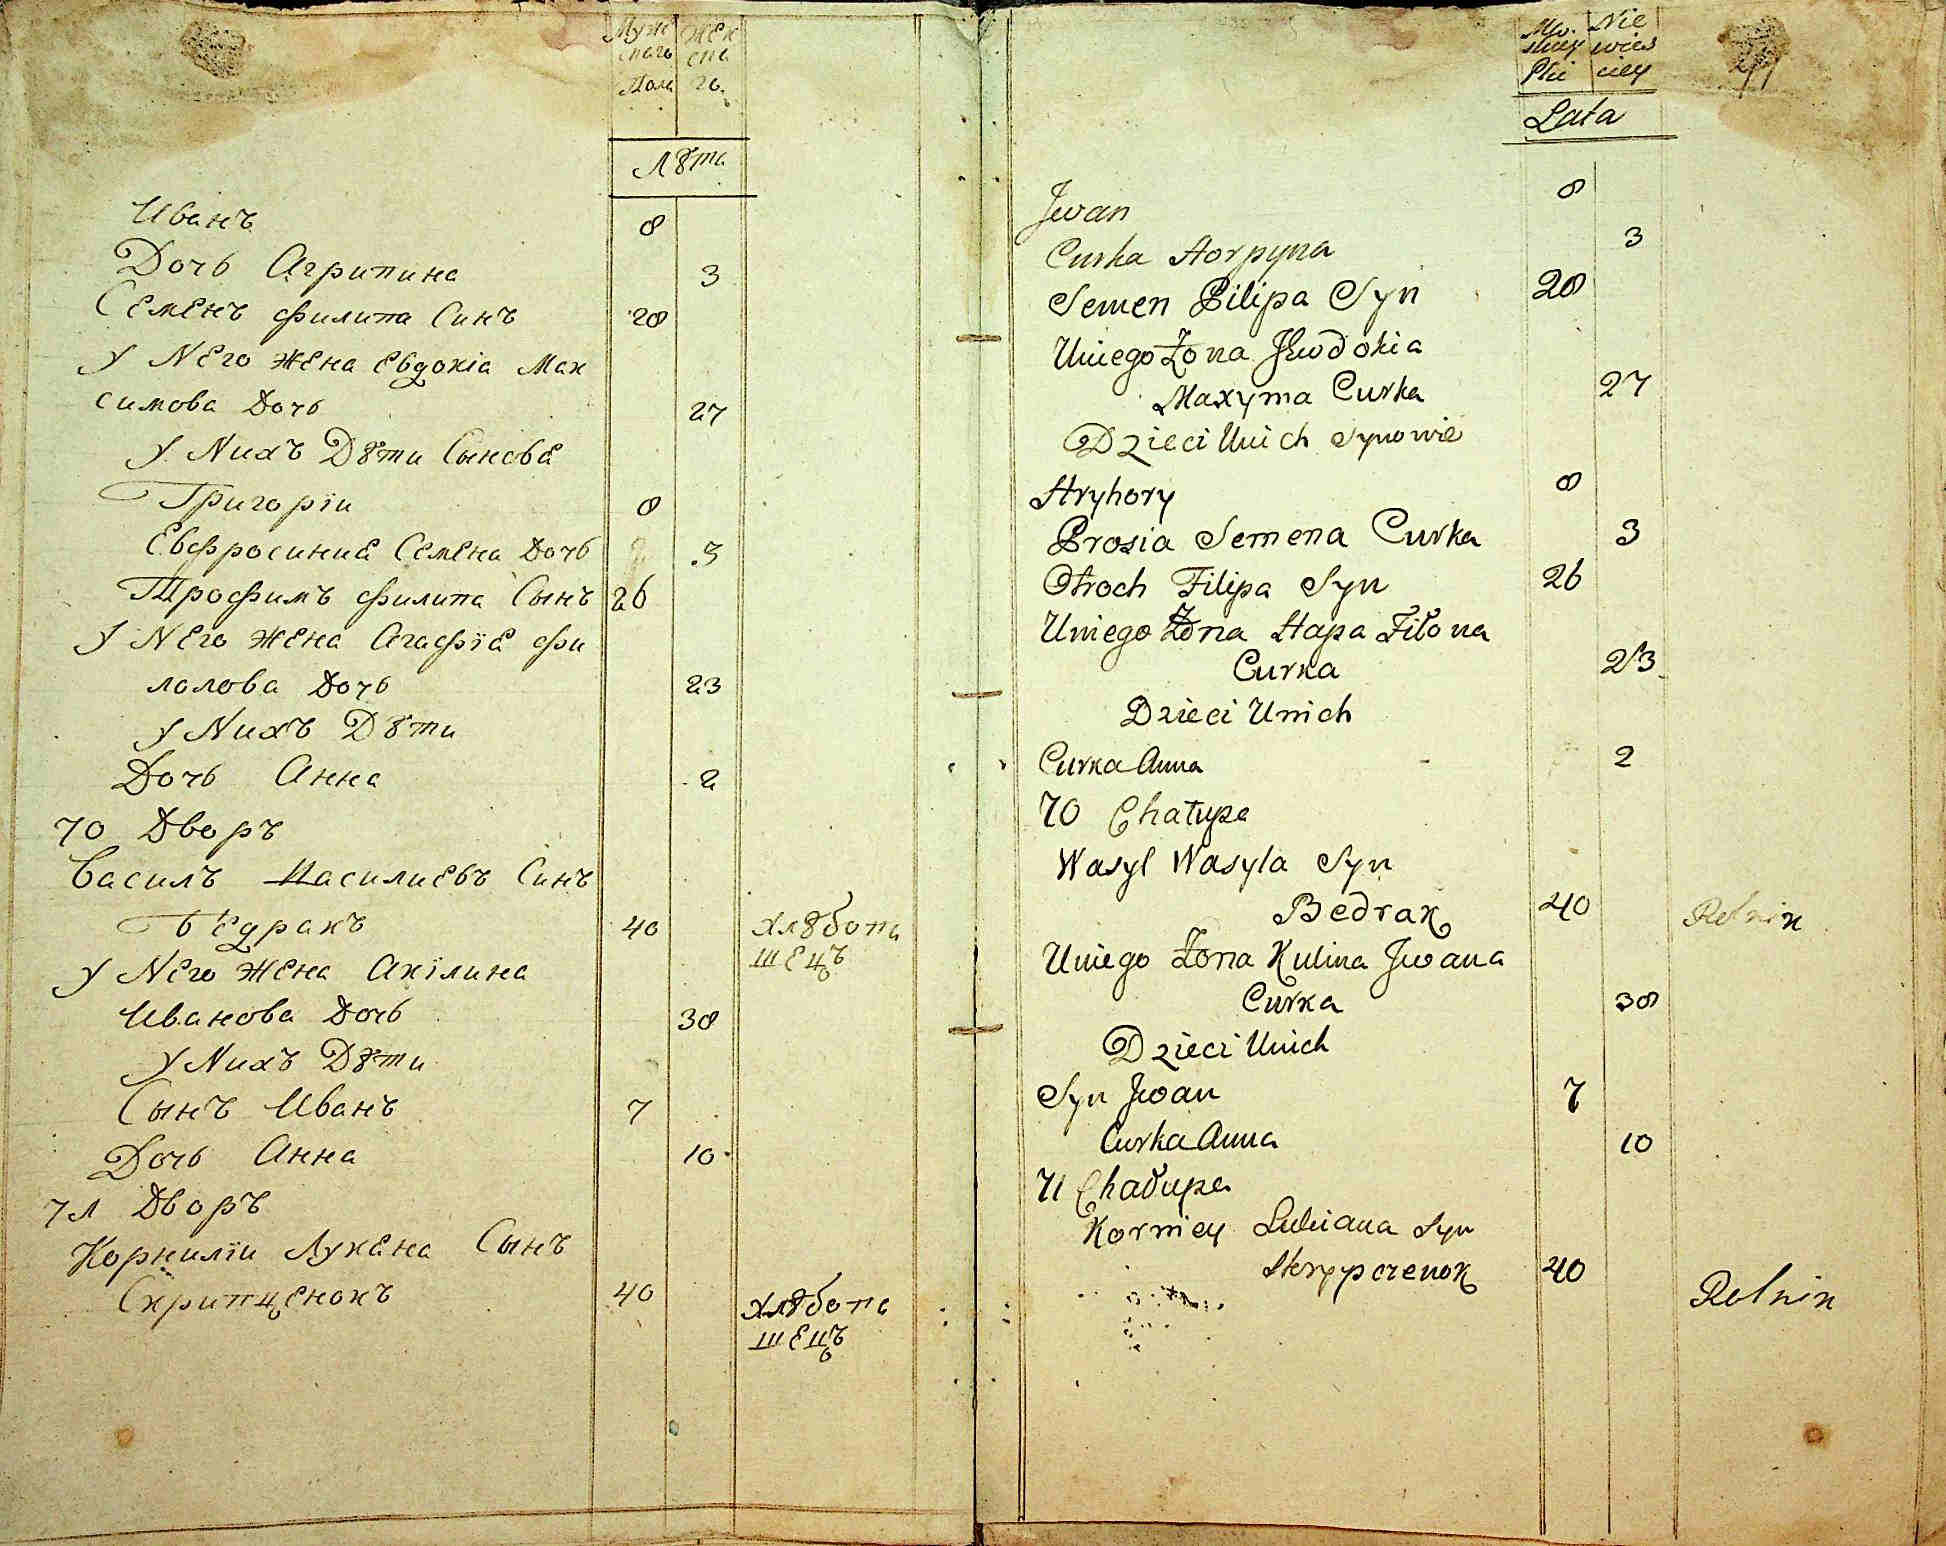 Муж Жен
скаго ска
Пола го.
Лѣта
Иванъ 8
Дочь Агрипина 3
Семенъ Филипа Синъ 28
У Него Жена Евдокіа Мак
симова Дочь 27
У Нихъ Дѣти Сынове
Григорїи 8
Евфросиние Семена Дочь 3
Трофимъ Филипа Сынъ 26
У Него Жена Агафїе Фи
лолова Дочь 23
У Нихъ Дѣти
Дочь Анна 2
70 Дворъ
Василъ Василиевъ Синъ
Бедракъ 40 Хлѣбопа
шецъ
У Него Жена Акїлина
Иванова Дочь 38
У Нихъ Дѣти
Сынъ Иванъ 7
Дочь Анна 10
71 Дворъ
Корнилїи Лукена Сынъ
Скрипценокъ 40 Хлѣбопа
шецъ
Mę. Nie
skiey wies
Płci ciey
Lata
Jwan 8
Curka Horpyna 3
Semen Pilipa Syn 28
Uniego Żona Jewdokia
Maxyma Curka 27
Dzieci Unich Synowie
Hryhory 8
Prosia Semena Curka 3
Otroch Filipa Syn 26
Uniego Żona Hapa Fiłona
Curka 23
Dzieci Unich
Curka Anna 2
70 Chałupa
Wasyl Wasyla Syn
Bedrak 40 Rolnik
Uniego Żona Kulina Jwana
Curka 38
Dzieci Unich
Syn Jwan 7
Curka Anna 10
71 Chałupa
Korniey Lukiana Syn
Skrypczenok 40 Rolnik